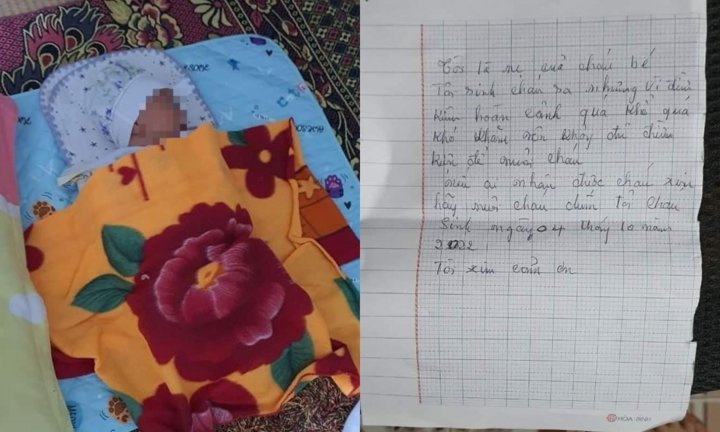 Tôi là mẹ quả cháu bé
Tôi sinh cháu ra nhưng vì điều
kiện hoàn cảnh quá khổ quá
khó khăn nên khay đủ điều
kiện để nuôi cháu
nếu ai nhận được cháu xin
hãy nuôi cháu dùm tôi cháu
sinh ngày 04 tháng 10 năm
2022
Tôi xin cảm ơn
HÒA BÌNH